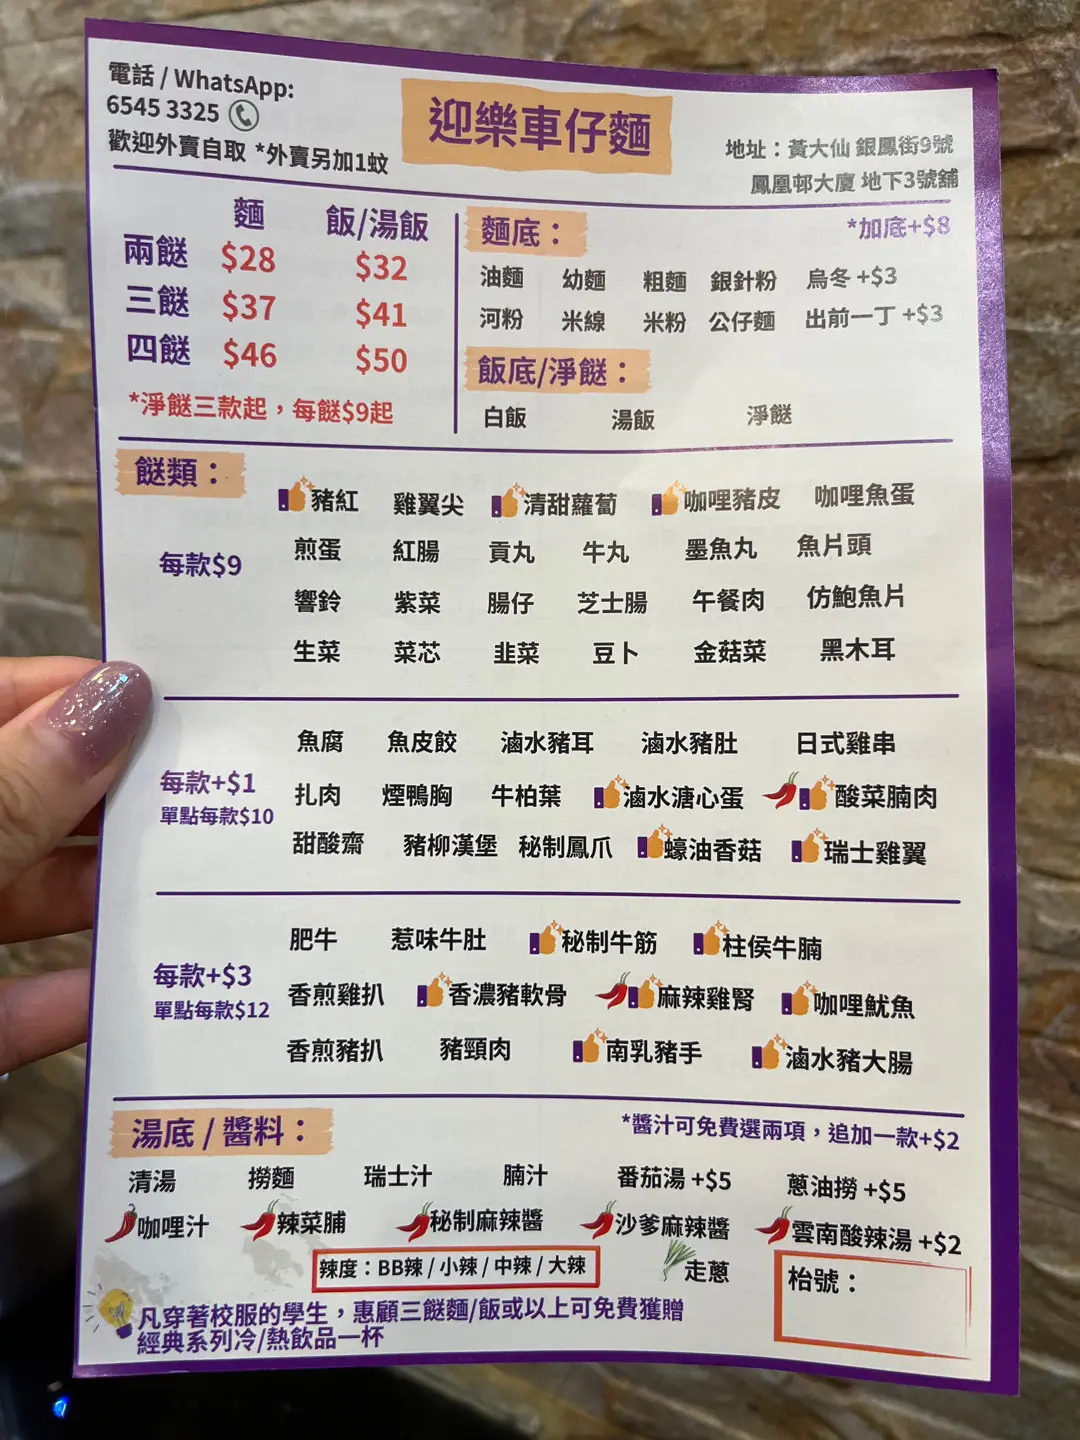 電話 / WhatsApp:
6545 3325
歡迎外賣自取 *外賣另加1蚊
迎樂車仔麵
地址：黃大仙 銀鳳街9號
鳳凰邨大廈 地下3號舖
麵 飯/湯飯
兩餸 $28 $32
三餸 $37 $41
四餸 $46 $50
*淨餸三款起，每餸$9起
麵底： *加底+$8
油麵 幼麵 粗麵 銀針粉 烏冬 +$3
河粉 米線 米粉 公仔麵 出前一丁 +$3
飯底/淨餸：
白飯 湯飯 淨餸
餸類：
每款$9
豬紅 雞翼尖 清甜蘿蔔 咖哩豬皮 咖哩魚蛋
煎蛋 紅腸 貢丸 牛丸 墨魚丸 魚片頭
響鈴 紫菜 腸仔 芝士腸 午餐肉 仿鮑魚片
生菜 菜芯 韭菜 豆卜 金菇菜 黑木耳
每款+$1
單點每款$10
魚腐 魚皮餃 滷水豬耳 滷水豬肚 日式雞串
扎肉 煙鴨胸 牛柏葉 滷水溏心蛋 酸菜腩肉
甜酸齋 豬柳漢堡 秘制鳳爪 蠔油香菇 瑞士雞翼
每款+$3
單點每款$12
肥牛 惹味牛肚 秘制牛筋 柱侯牛腩
香煎雞扒 香濃豬軟骨 麻辣雞腎 咖哩魷魚
香煎豬扒 豬頸肉 南乳豬手 滷水豬大腸
湯底 / 醬料： *醬汁可免費選兩項，追加一款+$2
清湯 撈麵 瑞士汁 腩汁 番茄湯 +$5 蔥油撈 +$5
咖哩汁 辣菜脯 秘制麻辣醬 沙爹麻辣醬 雲南酸辣湯 +$2
辣度：BB辣 / 小辣 / 中辣 / 大辣 走蔥
枱號：
凡穿著校服的學生，惠顧三餸麵/飯或以上可免費獲贈
經典系列冷/熱飲品一杯